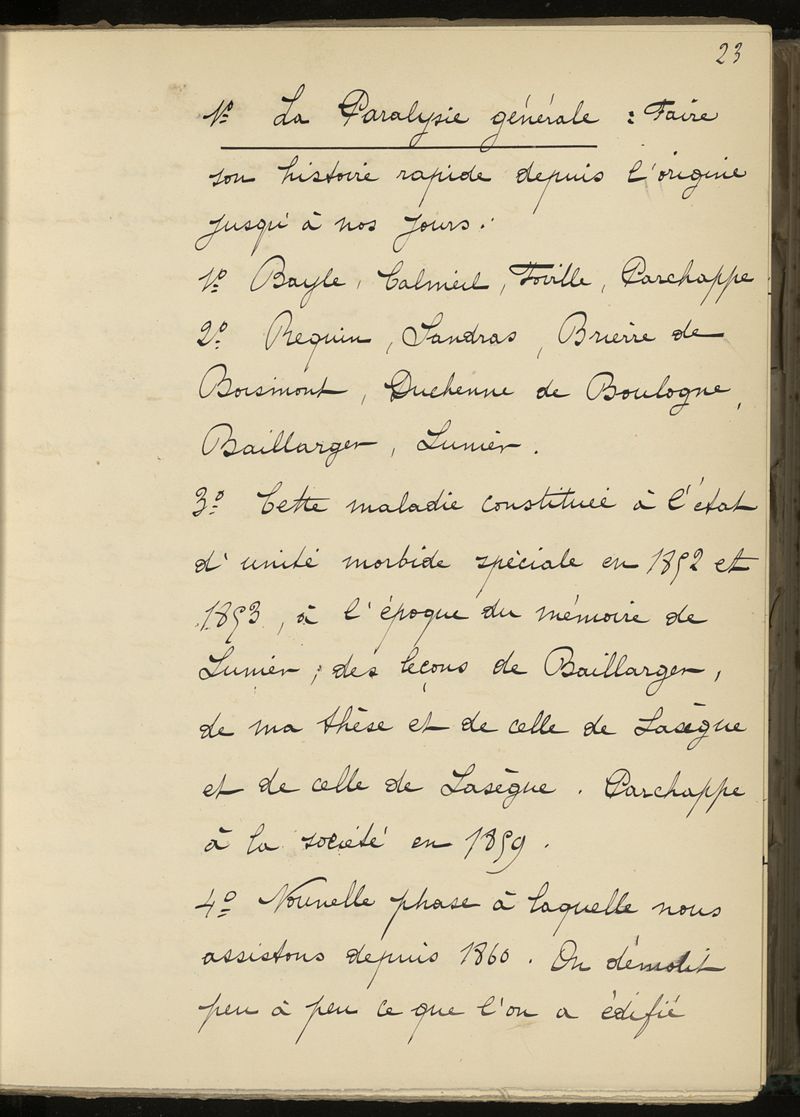 23
1º La Paralysie générale : Faire
son histoire rapide depuis l'origine
jusqu'à nos jours.
1º Bayle, Calmeil, Foville, Parchappe
2º Requin, Sandras, Brierre de
Boismont, Duchenne de Boulogne,
Baillarger, Lunier.
3º Cette maladie constituée à l'état
d'unité morbide spéciale en 1852 et
1853, à l'époque du mémoire de
Lunier, des leçons de Baillarger,
de ma thèse et de celle de Lasègue
et de celle de Lasègue. Parchappe
à la société en 1859.
4º Nouvelle phase à laquelle nous
assistons depuis 1860. On démolit
peu à peu ce que l'on a édifié